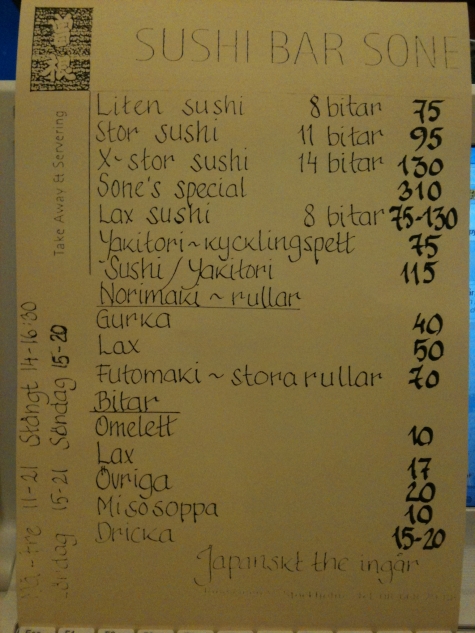 SUSHI BAR SONE
Take Away & Servering
Liten sushi 8 bitar 75
Stor sushi 11 bitar 95
X~stor sushi 14 bitar 130
Sone's special 310
Lax sushi 8 bitar 75-130
Yakitori~kycklingspett 75
Sushi/Yakitori 115
Norimaki ~ rullar
Gurka 40
Lax 50
Futomaki ~ stora rullar 70
Bitar
Omelett 10
Lax 17
Övriga 20
Misosoppa 10
Dricka 15-20
Japanskt the ingår
11-21 Stängt 14-16:30
Lördag 15-21 Söndag 15-20